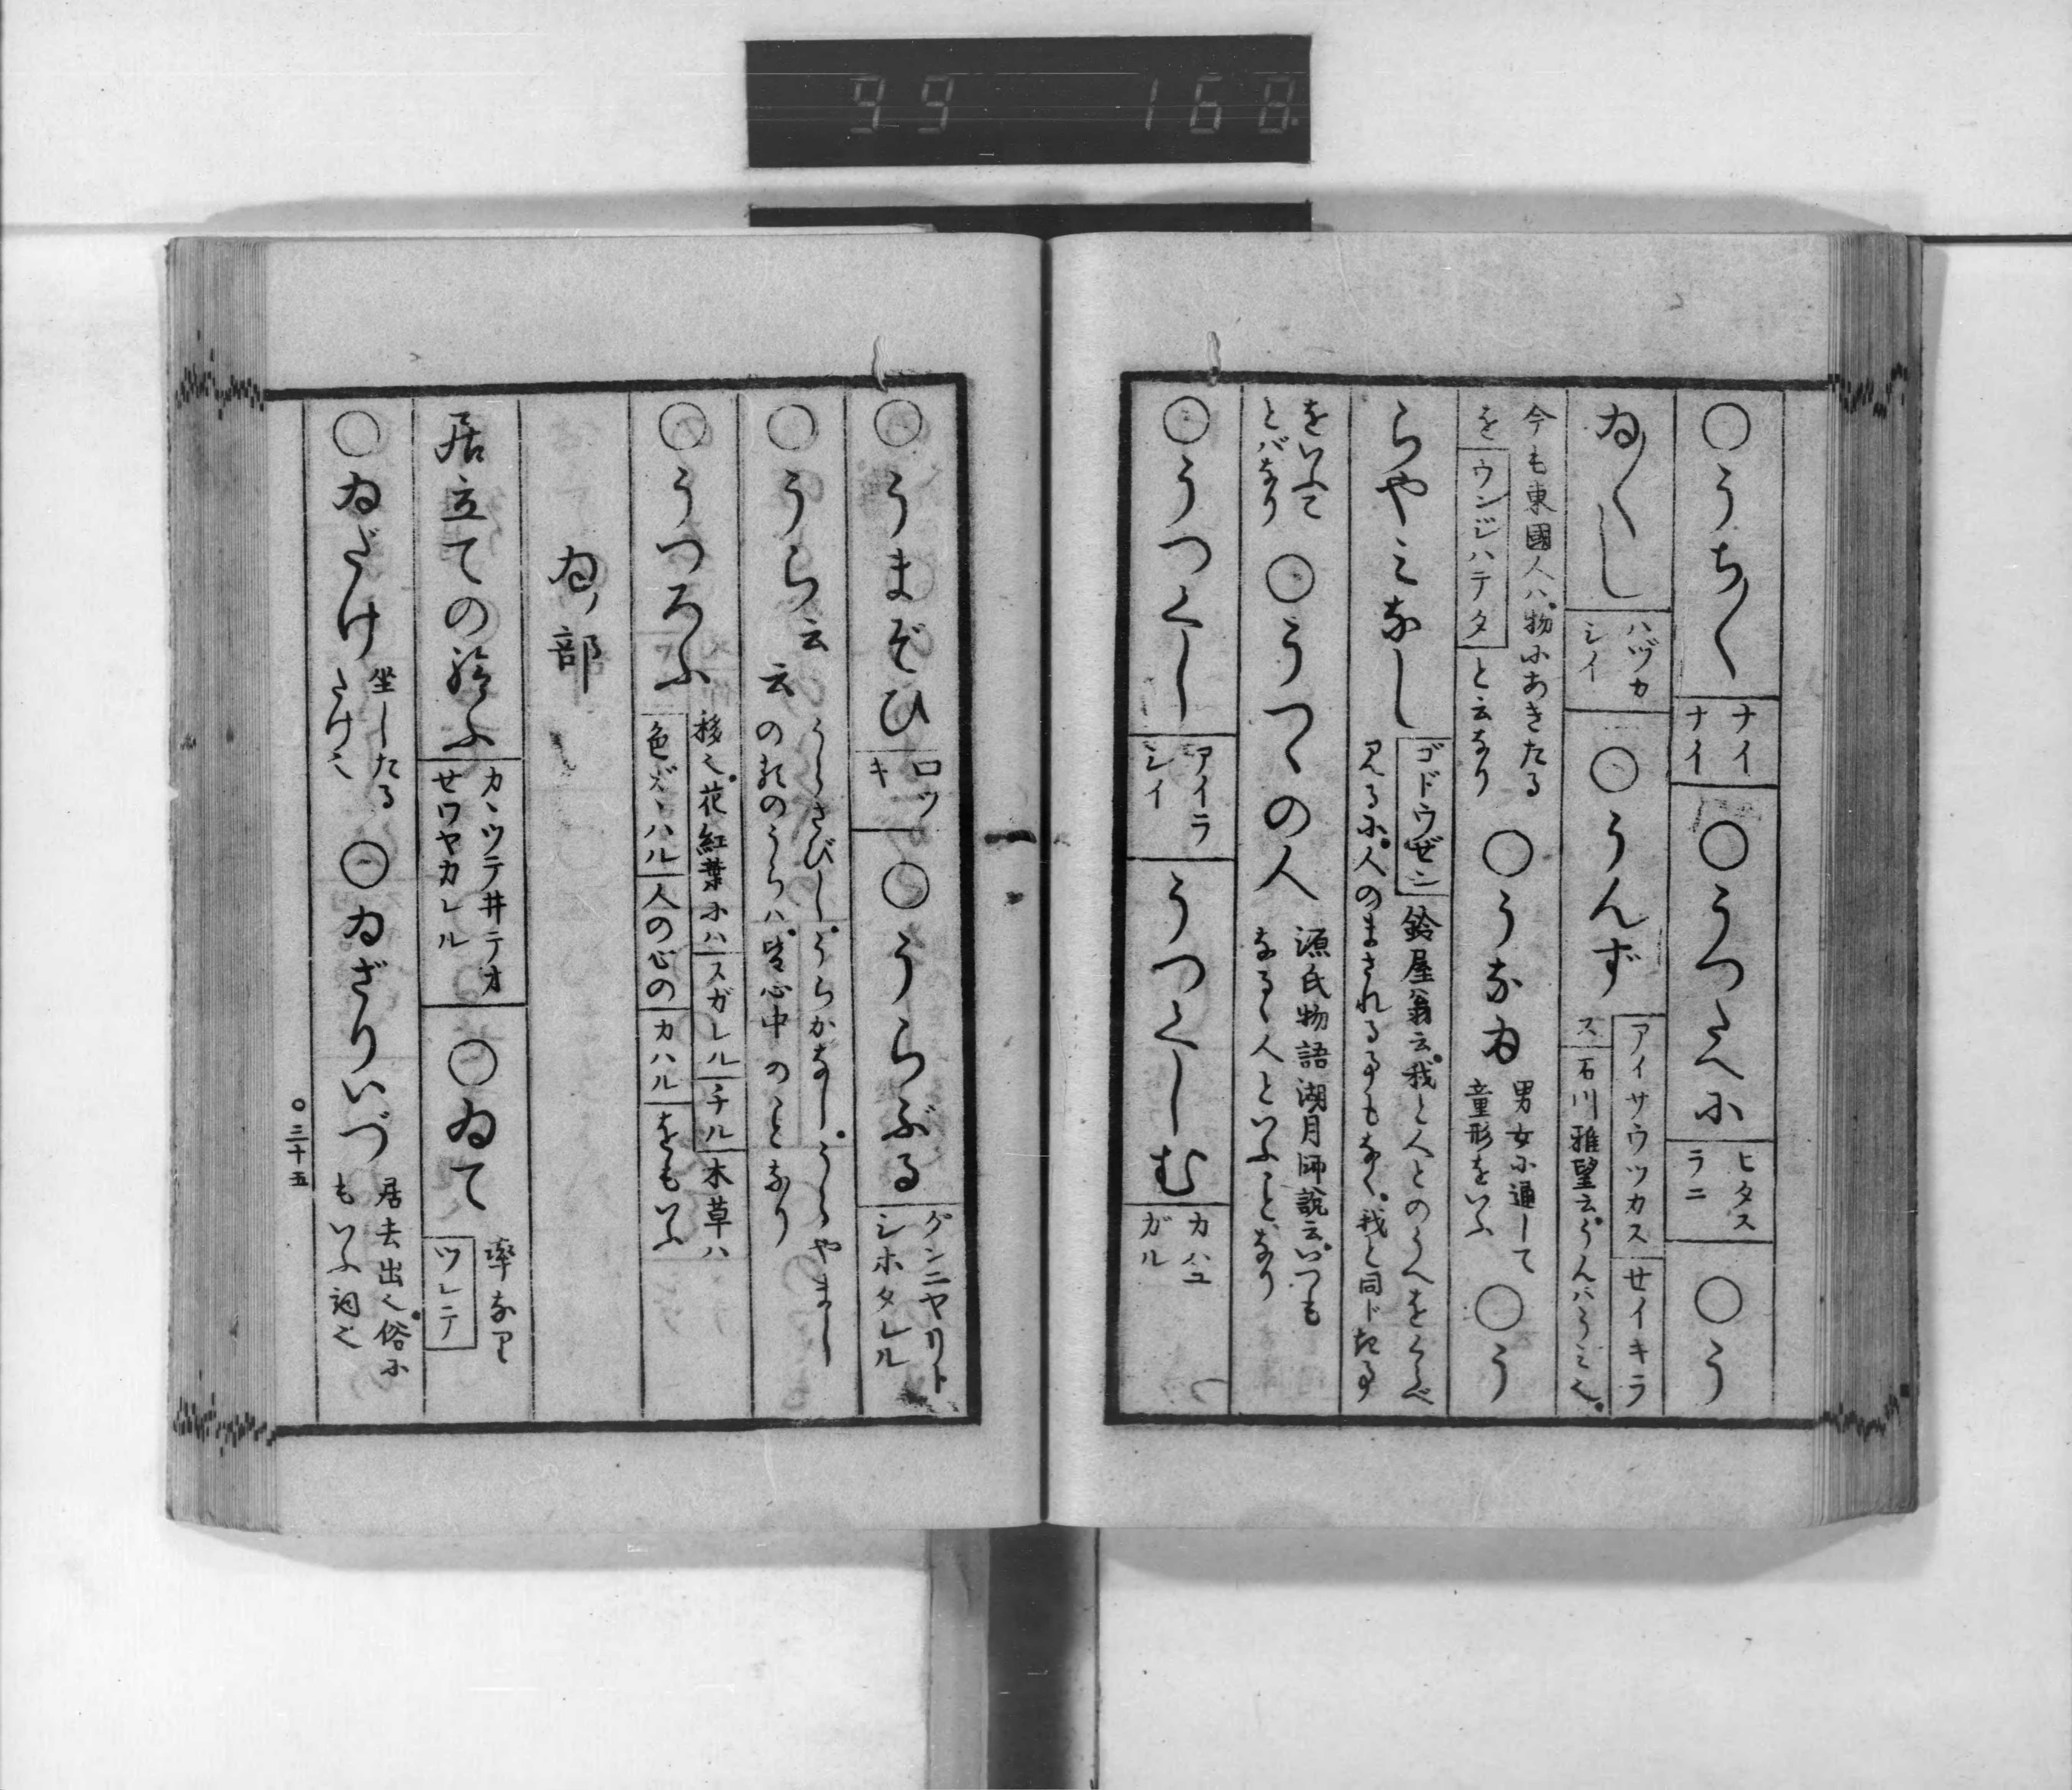 99 168
○うち〱 ナイナイ ○うつたへに ヒタスラニ ○う
ゐ〱し ハヅカシイ ○うんず アイサウツカス セイキラス 石川雅望云うんハうみ也
今も東國人ハ物にあきたるを ウンジハテタ と云なり ○うなゐ 男女に通して童形をいふ ○う
らやみなし ゴドウゼン 鈴屋翁云我と人とのうへをくらべ見るに人のまされる事もなく我と同じき事
をいふことバなり ○うつゝの人 源氏物語湖月師説云いつもなるゝ人といふことなり
○うつくし アイラシイ うつくしむ カハユガル
○うまぞひ ロツキ ○うらぶる グンニヤリト シホタレル
○うら云云 うらさびし うらかなし うらやまし の類のうらハ皆心中のことなり
○うつろふ 移也花紅葉にハ スガレル チル 木草ハ 色ガハル 人の心の カハル をもいふ
ゐノ部
居立ての給ふ カヽツテ井テオせワヤカレル ○ゐて 率なり ツレテ
○ゐだけ 坐したるたけ也 ○ゐざりいづ 居去出也俗にもいふ詞也
○三十五